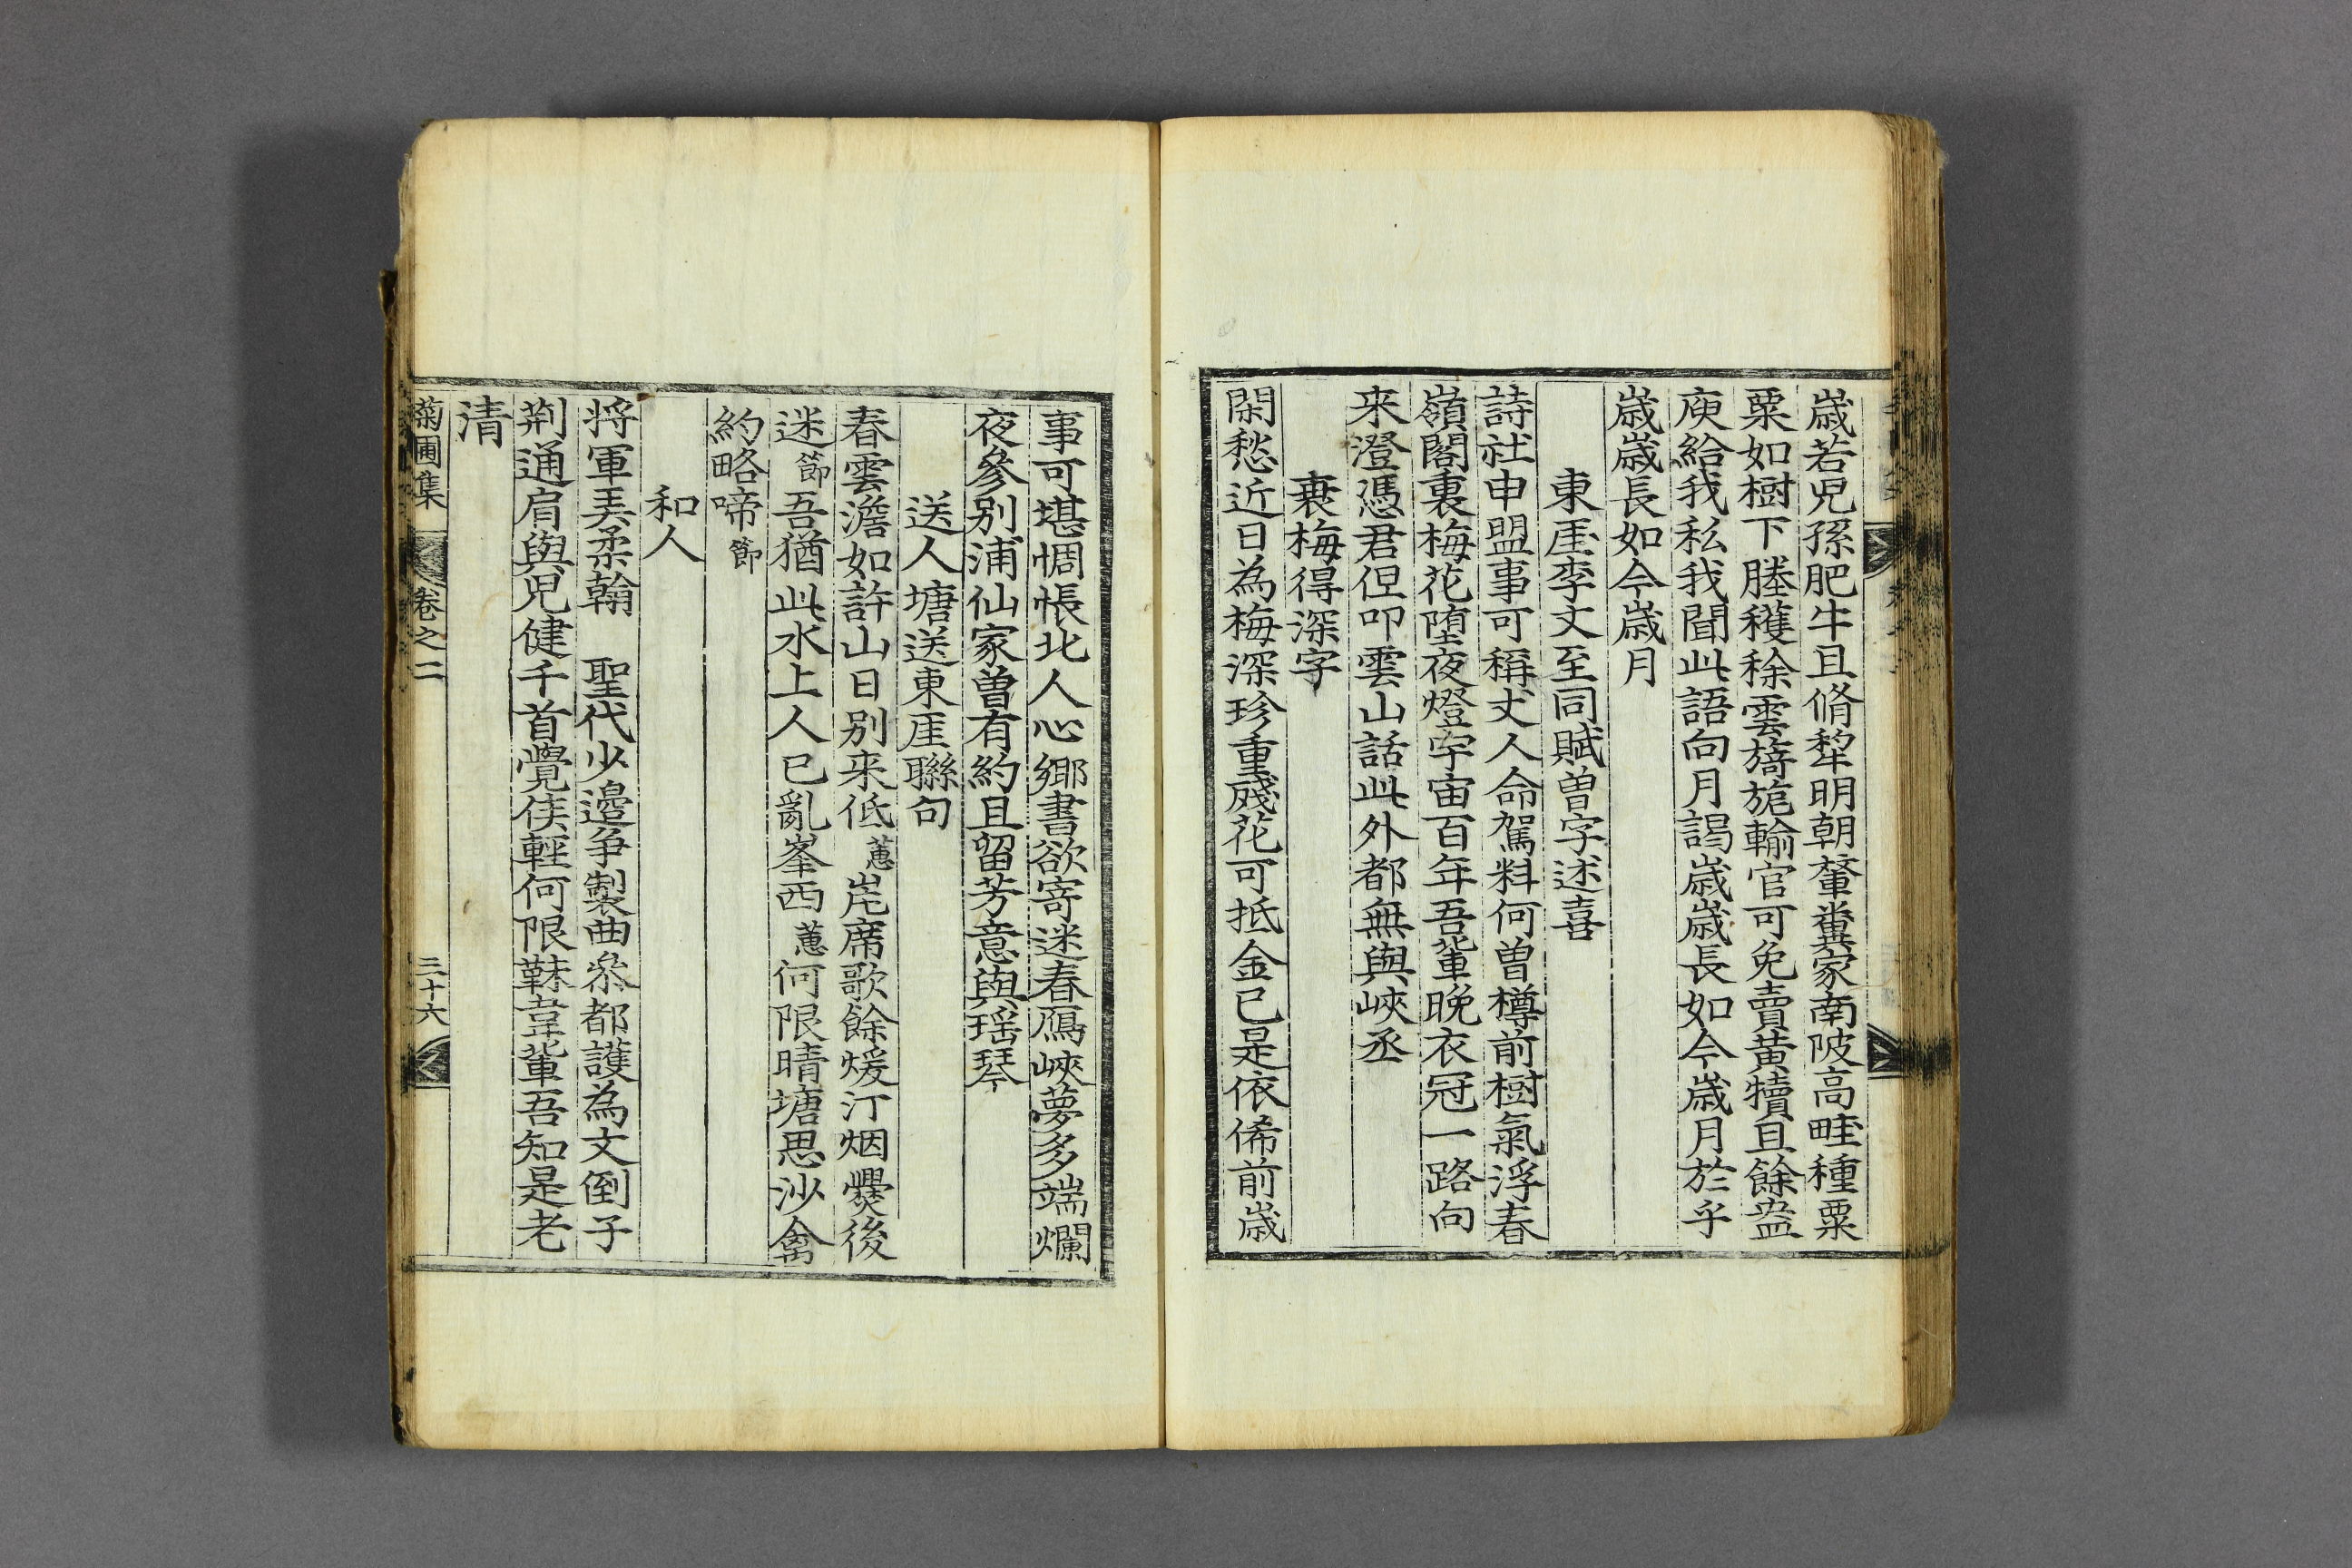 歲若児孫肥牛且脩犂明朝輂糞家南陂高畦種粟
粟如樹下塍穫稌雲旖旎輸官可免賣黃犢且餘盎
庾給我私我聞此語向月謁歲歲長如今歲月於乎
歲歲長如今歲月
東厓李文至同賦曾字述喜
詩社申盟事可稱丈人命駕料何曾樽前樹氣浮春
嶺閣裏梅花墮夜燈宇宙百年吾輩晩衣冠一路向
来澄憑君但叩雲山話此外都無與峽丞
衰梅得深字
閑愁近日為梅深珍重殘花可抵金已是依俙前歲
事可堪惆悵北人心鄉書欲寄迷春鴈峽夢多端爛
夜參別浦仙家曾有約且留芳意與瑶琴
送人塘送東厓聯句
春雲澹如許山日別来低蕙岸席歌餘煖汀烟㸑後
迷節吾猶此水上人已亂峯西蕙何限晴塘思沙禽
約略啼節
和人
将軍弄柔翰 聖代少邊爭製曲叅都護為文倒子
荊通肩與児健千首覺侯輕何限韎韋輩吾知是老
清
菊圃集 卷之二 三十六